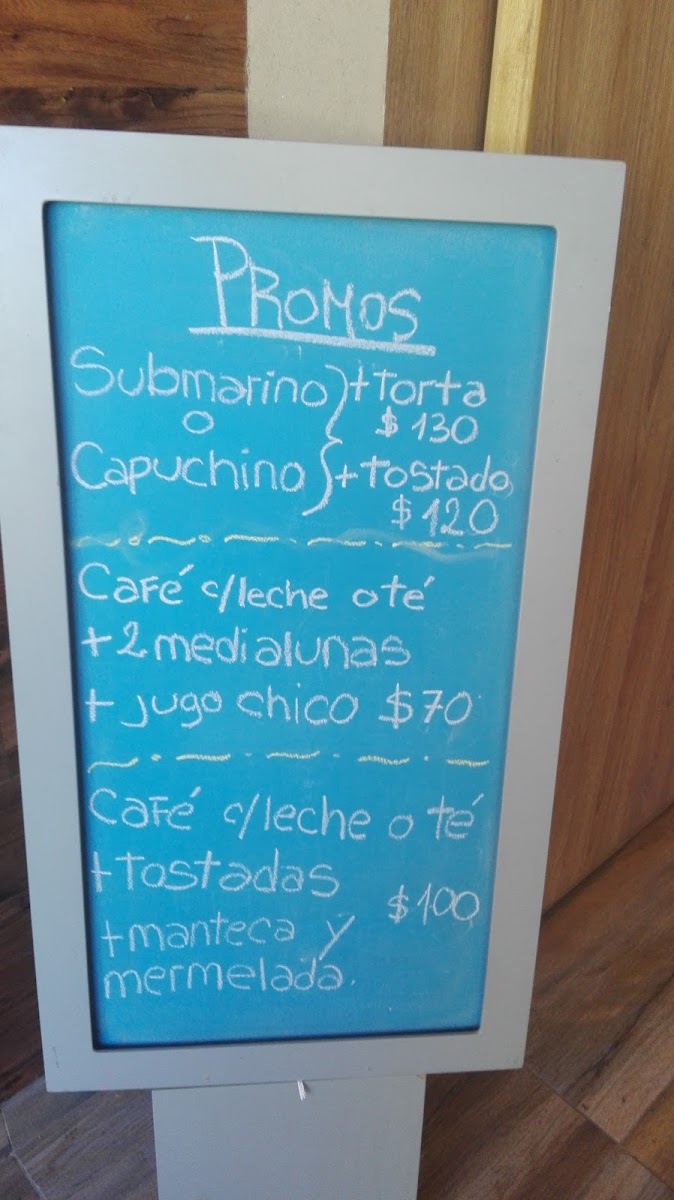 PROMOS
Submarino } + torta
o $ 130
Capuchino } + tostado
$ 120
Café c/leche o té
+ 2 medialunas
+ jugo chico $70
Café c/leche o té
+ tostadas
$100
+ manteca y
mermelada.